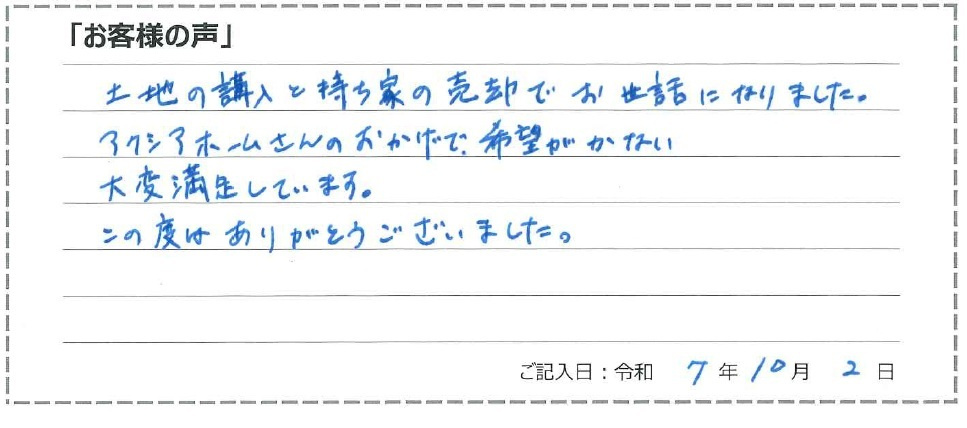 「お客様の声」
土地の購入と持ち家の売却でお世話になりました。
アクシアホームさんのおかげで、希望がかない
大変満足しています。
この度はありがとうございました。
ご記入日：令和 7年 10月 2日